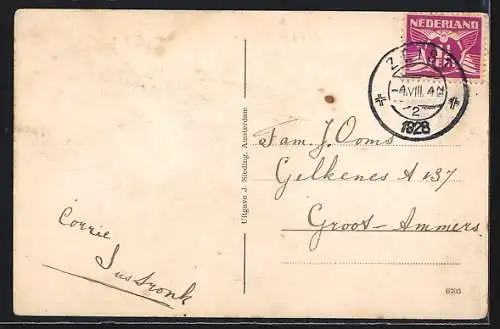 NEDERLAND
-4.VIII. 4
2
1928
Fam. J. Ooms
Gelkenes A 137
Groot-Ammers
Corrie
Uitgave J. Sleding, Amsterdam
6705